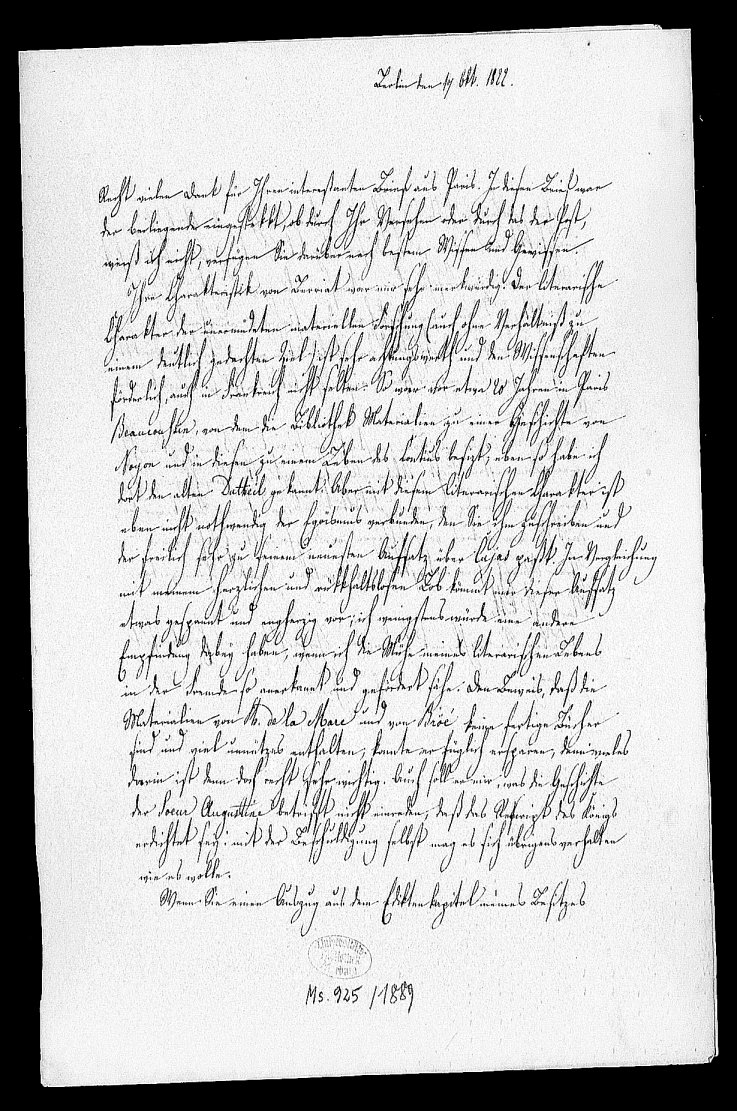 Berlin den 17 Okt. 1822.
Recht vielen Dank für Ihren interessanten Brief aus Paris. In diesem Brief war
der beiliegende eingesteckt, ob durch Ihr Versehen oder durch das der Post,
weiß ich nicht, verfügen Sie darüber nach bestem Wissen und Gewissen.
Ihre Charakteristik von Berriat war mir sehr merkwürdig. Der literarische
Charakter der unermüdeten materiellen Forschung (auch ohne Verhältniß zu
einem deutlich gedachten Ziel) ist sehr achtungswerth und den Wissenschaften
förderlich, auch in Frankreich nicht selten. So war vor etwa 20 Jahren in Paris
von dem die Bibliothek Materialien zu einer Geschichte von
Noyon und in diesen zu einem Leben des besizt, eben so habe ich
dort den alten Dutheil gekannt. Aber mit diesem literarischen Charakter ist
eben nicht nothwendig der Egoismus verbunden, den Sie ihm zuschreiben und
der freilich sehr zu seinem neuesten Aufsatz über Cujas paßt. In Vergleichung
mit meinem herzlichen und rückhaltslosen Lob kömmt mir dieser Aufsatz
etwas gespannt und engherzig vor; ich wenigstens würde eine andere
Empfindung dabey haben, wenn ich die Mühe meines literarischen Lebens
in der Fremde so anerkannt und gefördert sähe. Den Beweis, daß die
Materialien von B. de la Mare und von Broé keine fertige Bücher
sind und viel unnützes enthalten, konnte er füglich ersparen, denn vieles
darin ist denn doch recht sehr wichtig. Auch soll er mir, was die Geschichte
der Soeur Augustine betrifft nicht einreden, daß das Rescript des Königs
erdichtet sey: mit der Beschuldigung selbst mag es sich übrigens verhalten
wie es wolle.
Wenn Sie einen Auszug aus dem Ediktenkapitel meines Besitzes
Ms. 925 / 1889